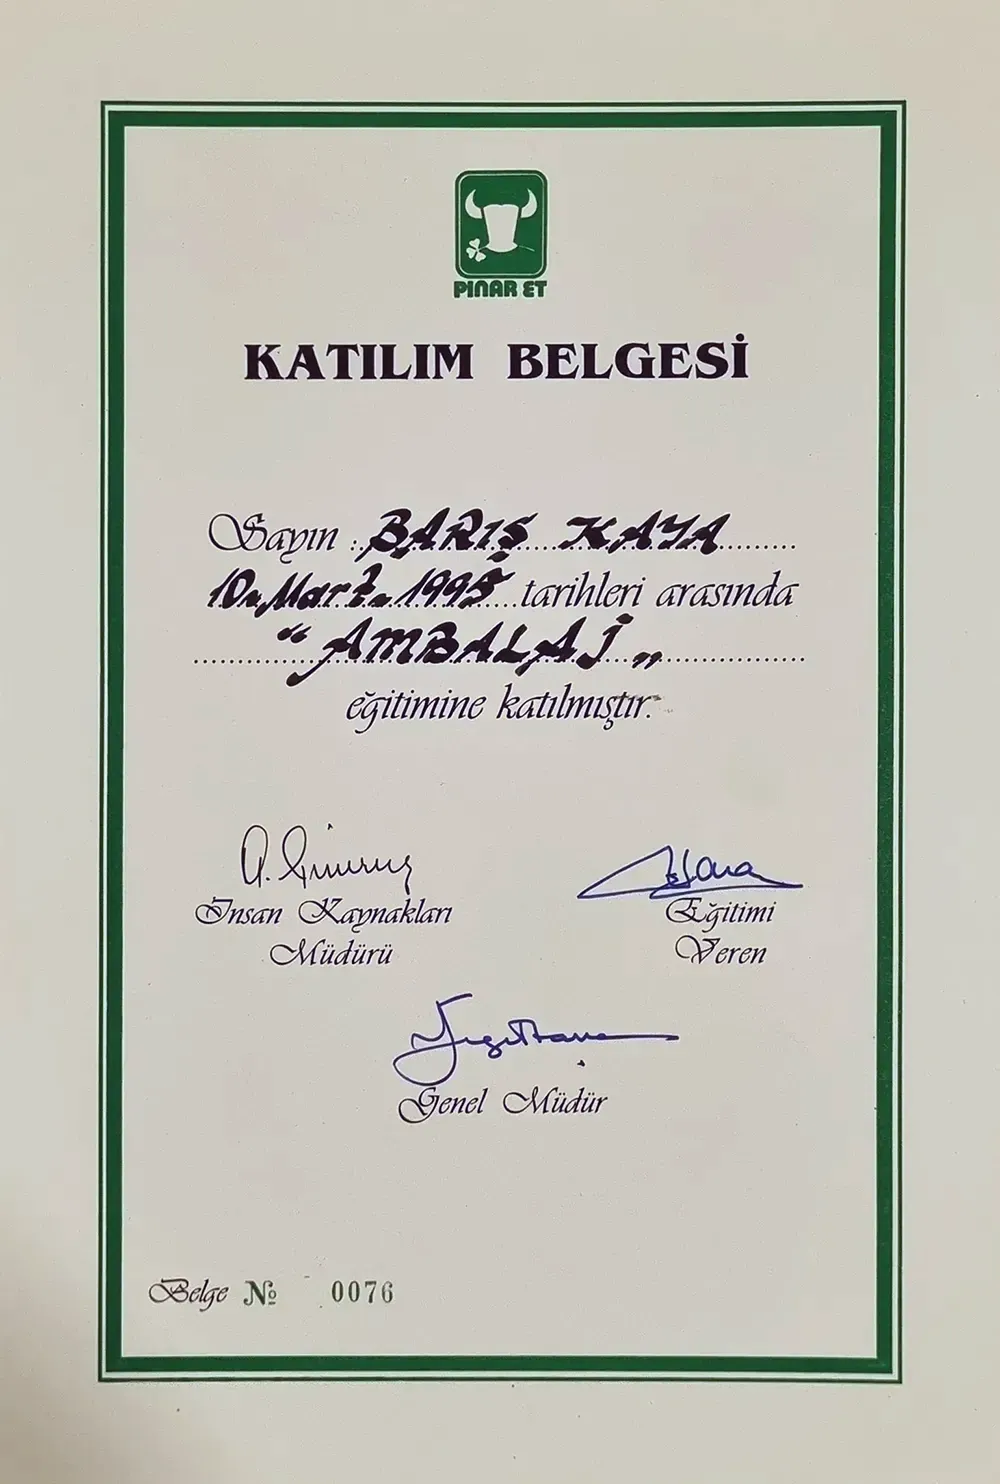 PINAR ET
KATILIM BELGESİ
Sayın : BARIŞ KAYA
10. Mart. 1995 tarihleri arasında
"AMBALAJ"
eğitimine katılmıştır.
İnsan Kaynakları
Müdürü
Eğitimi
Veren
Genel Müdür
Belge № 0076